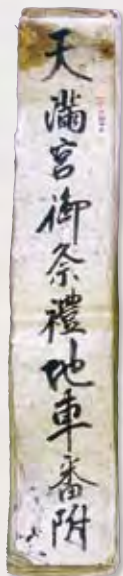 天滿宮御祭禮地車番附